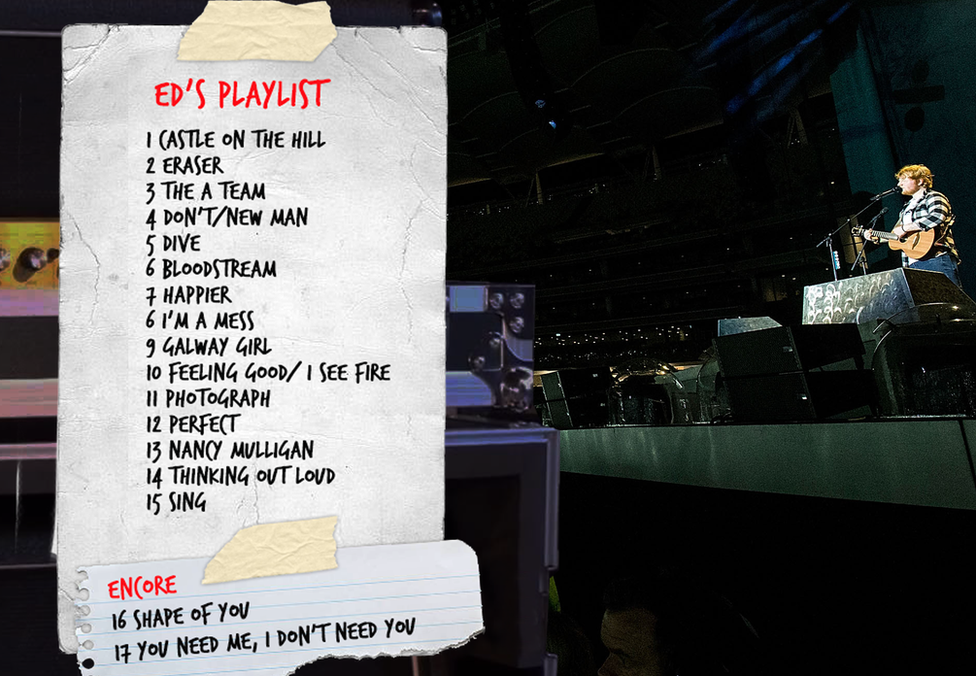 ED'S PLAYLIST
1 CASTLE ON THE HILL
2 ERASER
3 THE A TEAM
4 DON'T/NEW MAN
5 DIVE
6 BLOODSTREAM
7 HAPPIER
6 I'M A MESS
9 GALWAY GIRL
10 FEELING GOOD/ I SEE FIRE
11 PHOTOGRAPH
12 PERFECT
13 NANCY MULLIGAN
14 THINKING OUT LOUD
15 SING
ENCORE
16 SHAPE OF YOU
17 YOU NEED ME, I DON'T NEED YOU